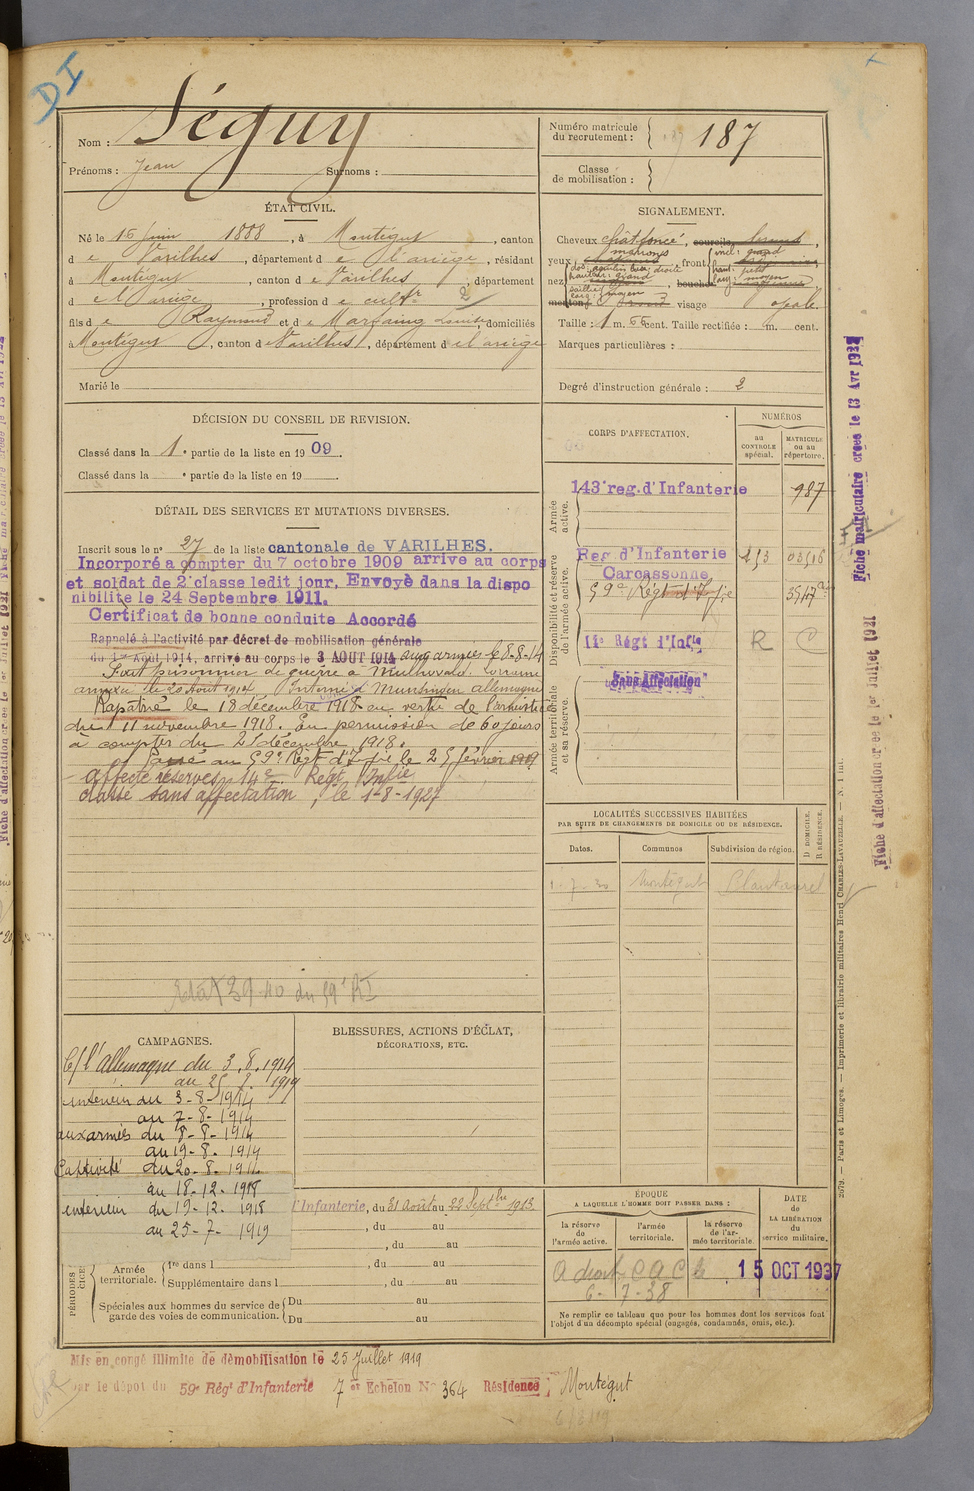 DI
Nom : Séguy
Prénoms : Jean Surnoms :
Numéro matricule du recrutement : 187
Classe de mobilisation :
ÉTAT CIVIL.
Né le 16 Juin 1888, à Montégut, canton
d e Varilhes, département d e l'ariège, résidant
à Montégut, canton d e Varilhes, département
d e l'Ariège, profession d e cultr 2
fils d e Raymond et d e Marfaing Louise, domiciliés
à Montégut, canton d e Varilhes, département d e l'ariège
Marié le
SIGNALEMENT.
Cheveux chât foncé, sourcils
yeux marrons, front incl: grand
haut: petit
larg: moyen
nez dos
hauteur: grand
saillie
larg: moyen
bouche
menton rond visage ovale
Taille : 1 m. 66 cent. Taille rectifiée : m. cent.
Marques particulières :
Degré d'instruction générale : 2
DÉCISION DU CONSEIL DE REVISION.
Classé dans la 1e partie de la liste en 1909.
Classé dans la e partie de la liste en 19
DÉTAIL DES SERVICES ET MUTATIONS DIVERSES.
Inscrit sous le n° 27 de la liste cantonale de VARILHES.
Incorporé à compter du 7 octobre 1909 arrivé au corps
et soldat de 2e classe ledit jour. Envoyé dans la dispo
nibilité le 24 Septembre 1911.
Certificat de bonne conduite Accordé
Rappelé à l'activité par décret de mobilisation générale
du 1er Août 1914, arrivé au corps le 3 AOUT 1914 aux armées le 8-8-14
Fait prisonnier de guerre à Lorraine
annexée le 20 Août 1914. Interné à Munsingen allemagne
Rapatrié le 18 décembre 1918 en vertu de l'armistice
du 11 novembre 1918. En permission de 60 jours
à compter du 21 décembre 1918.
Passé au 59e Régt d'Infie le 25 février 1919
Affecté réserves 14e Régt Infie
classé sans affectation, le 1-8-1927
39-40 du 59e RI
CORPS D'AFFECTATION.
NUMÉROS
au contrôle spécial.
MATRICULE ou au répertoire.
Armée active.
143e reg. d'Infanterie 987
Disponibilité et réserve de l'armée active.
Reg d'Infanterie 253 03516
Carcassonne
59e Régt d'Infie
14e Régt d'Infie R C
Armée territoriale et sa réserve.
Sans Affectation
LOCALITÉS SUCCESSIVES HABITÉES
PAR SUITE DE CHANGEMENTS DE DOMICILE OU DE RÉSIDENCE.
Dates. Communes Subdivision de région. D DOMICILE. R RÉSIDENCE.
1-7-30 Montégut Plantaurel
CAMPAGNES.
C/ l'Allemagne du 3.8.1914
au 25.7.1919
intérieur du 3-8-1914
au 7-8-1914
aux armées du 8-8-1914
au 19-8-1914
Captivité du 20-8-1914
au 18-12-1918
intérieur du 19-12-1918
au 25-7-1919
BLESSURES, ACTIONS D'ÉCLAT,
DÉCORATIONS, ETC.
PÉRIODES
d'Infanterie, du 31 Août au 22 Septbre 1913
, du au
, du au
Armée territoriale. 1re dans l , du au
Supplémentaire dans l , du au
Spéciales aux hommes du service de garde des voies de communication. Du au
Du au
ÉPOQUE
A LAQUELLE L'HOMME DOIT PASSER DANS :
la réserve de l'armée active.
l'armée territoriale.
la réserve de l'armée territoriale.
DATE de LA LIBÉRATION du service militaire.
A droit CAC le 15 OCT 1937
6-7-38
Ne remplir ce tableau que pour les hommes dont les services font
l'objet d'un décompte spécial (engagés, condamnés, omis, etc.).
Mis en congé illimité de démobilisation le 25 Juillet 1919
par le dépôt du 59e Régt d'Infanterie 7e Echelon No 364 Résidence Montégut
Fiche matriculaire créée le 13 Avr 1932
Fiche d'affectation créée le 1er Juillet 1921
2679. — Paris et Limoges. — Imprimerie et librairie militaires Henri CHARLES-LAVAUZELLE. — N. 1